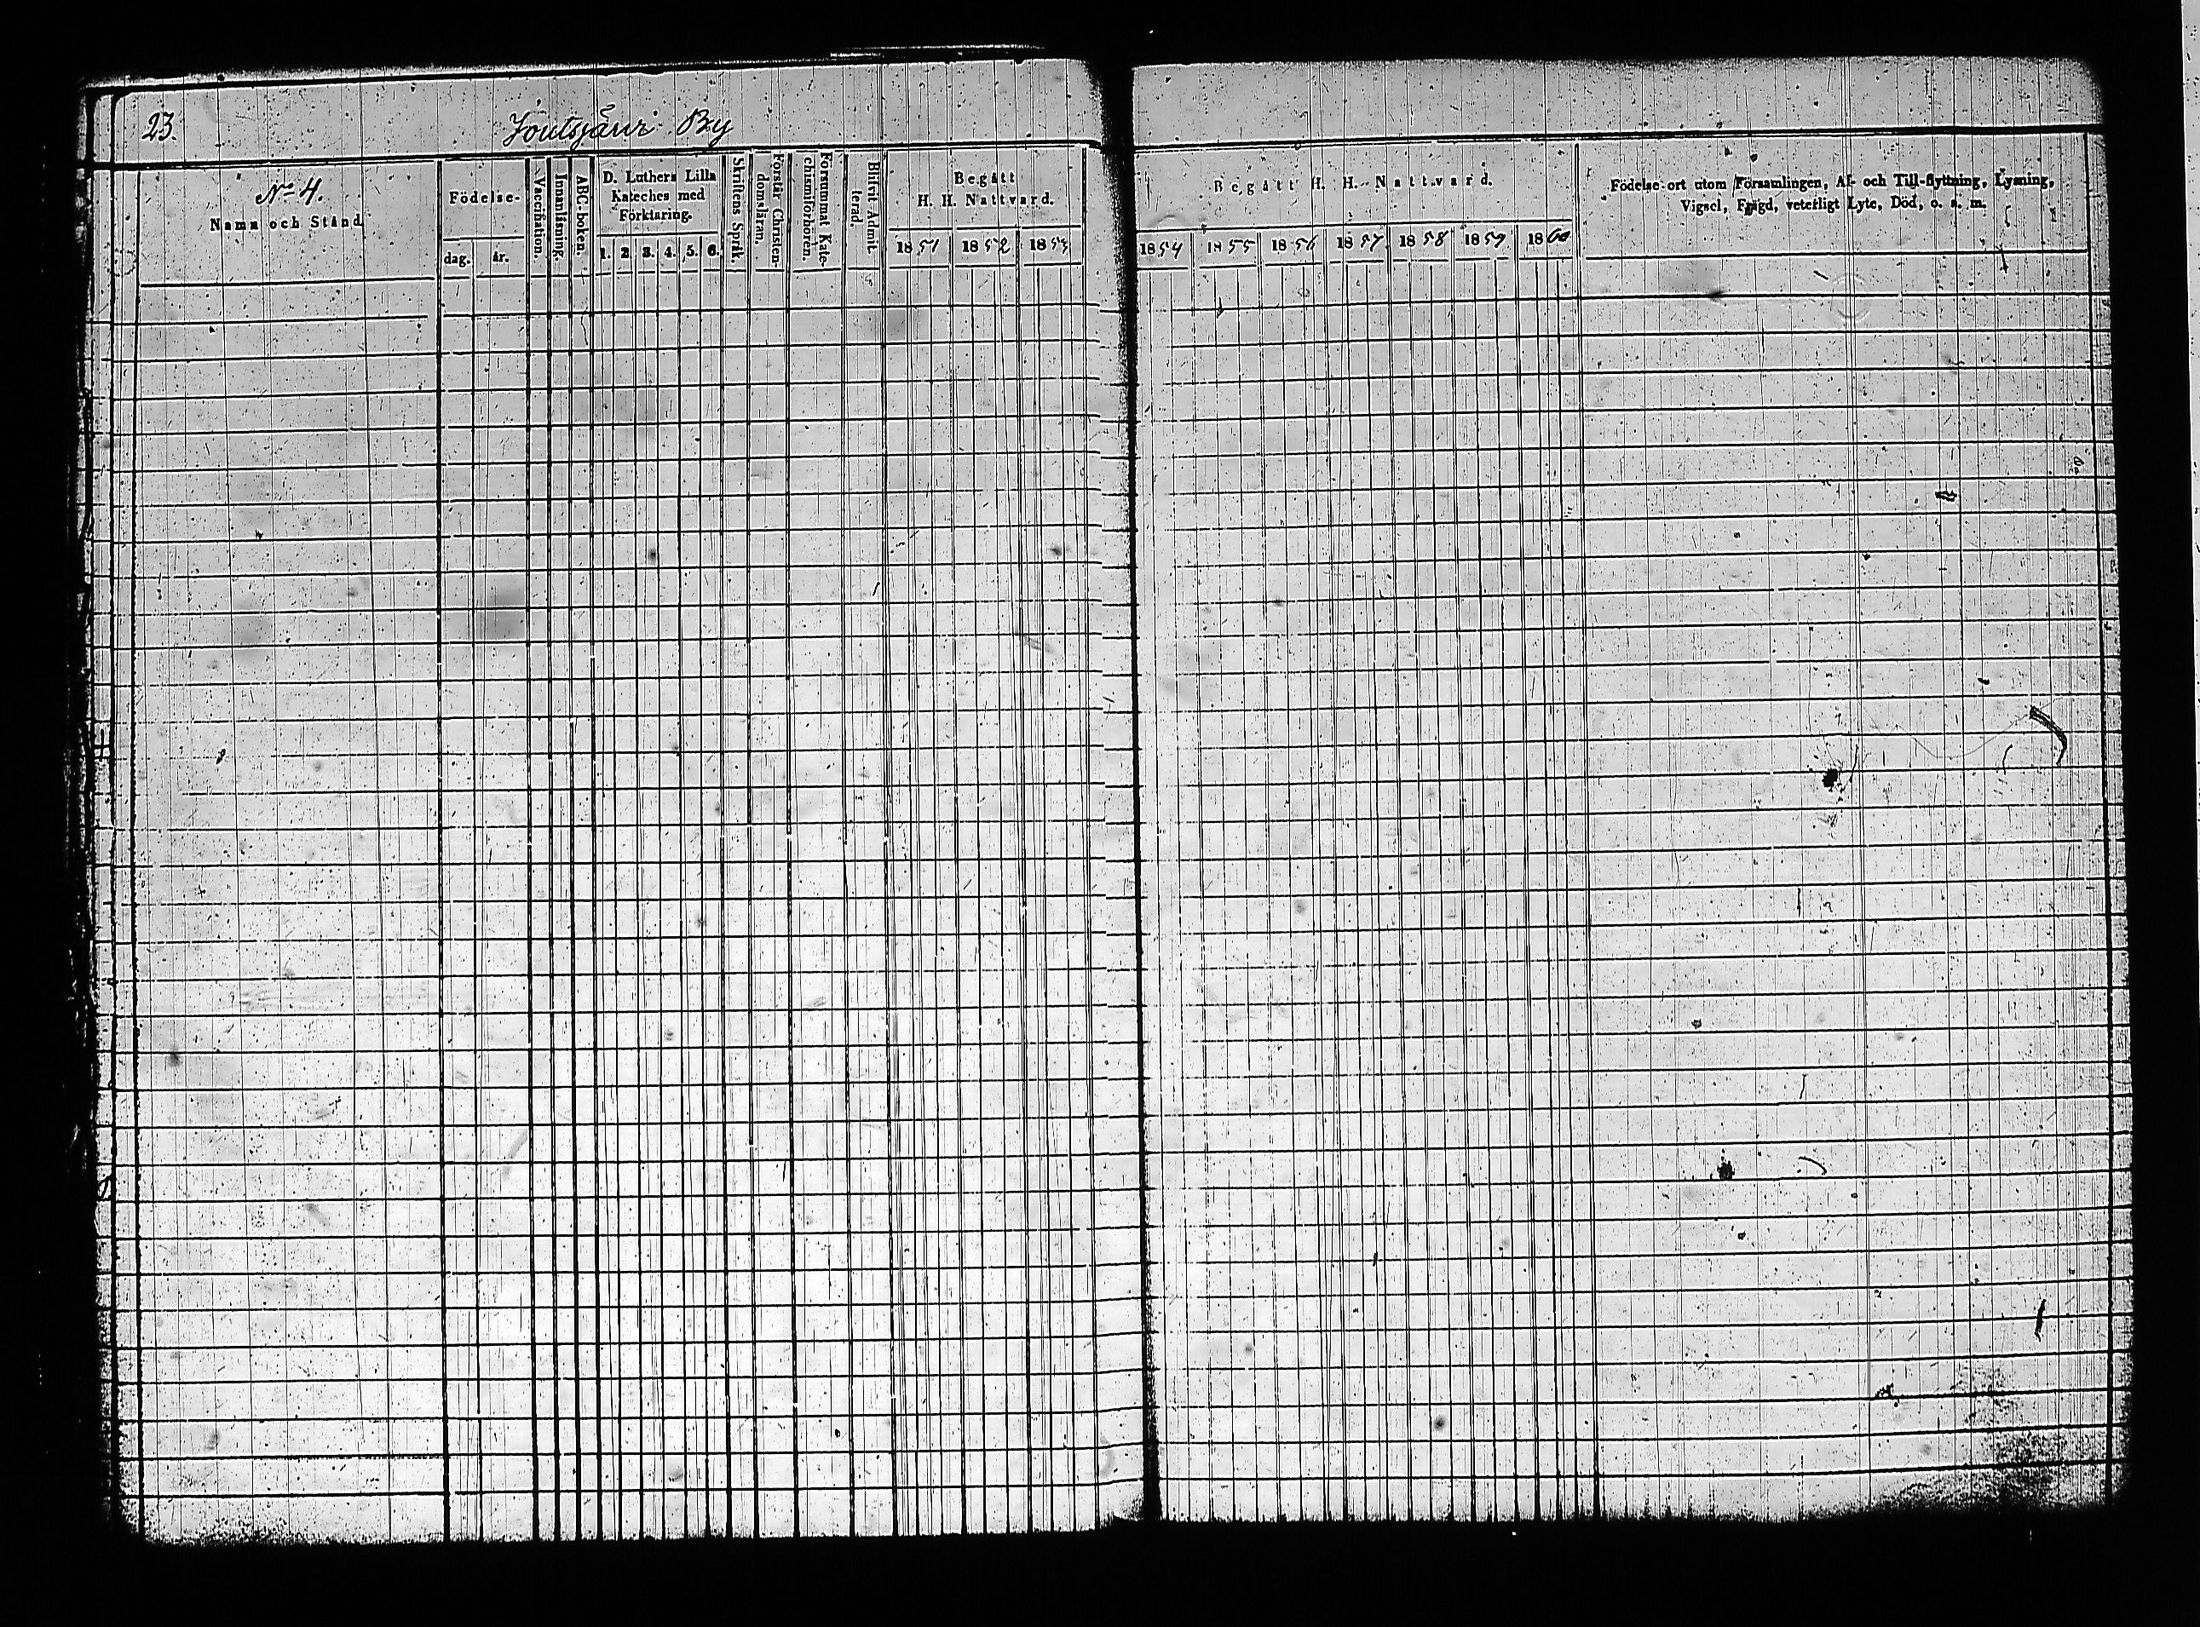 23.
Joutsjärvi By
No 4.
Namn och Stånd
Födelse-
dag.
år.
Vaccination.
Innanläsning.
ABC-boken.
D. Luthers Lilla
Kateches med
Förklaring.
1. 2. 3. 4. 5. 6.
Skriftens Språk.
Förstår Christen-
domsläran.
Försummat Kate-
chismiförhören.
Blifvit Admit-
terad.
Begått
H. H. Nattvard.
1851 1852 1853
Begått H. H. Nattvard.
1854 1855 1856 1857 1858 1859 1860
Födelse-ort utom Församlingen, Af- och Till-flyttning, Lysning,
Vigsel, Frägd, veterligt Lyte, Död, o. s. m.